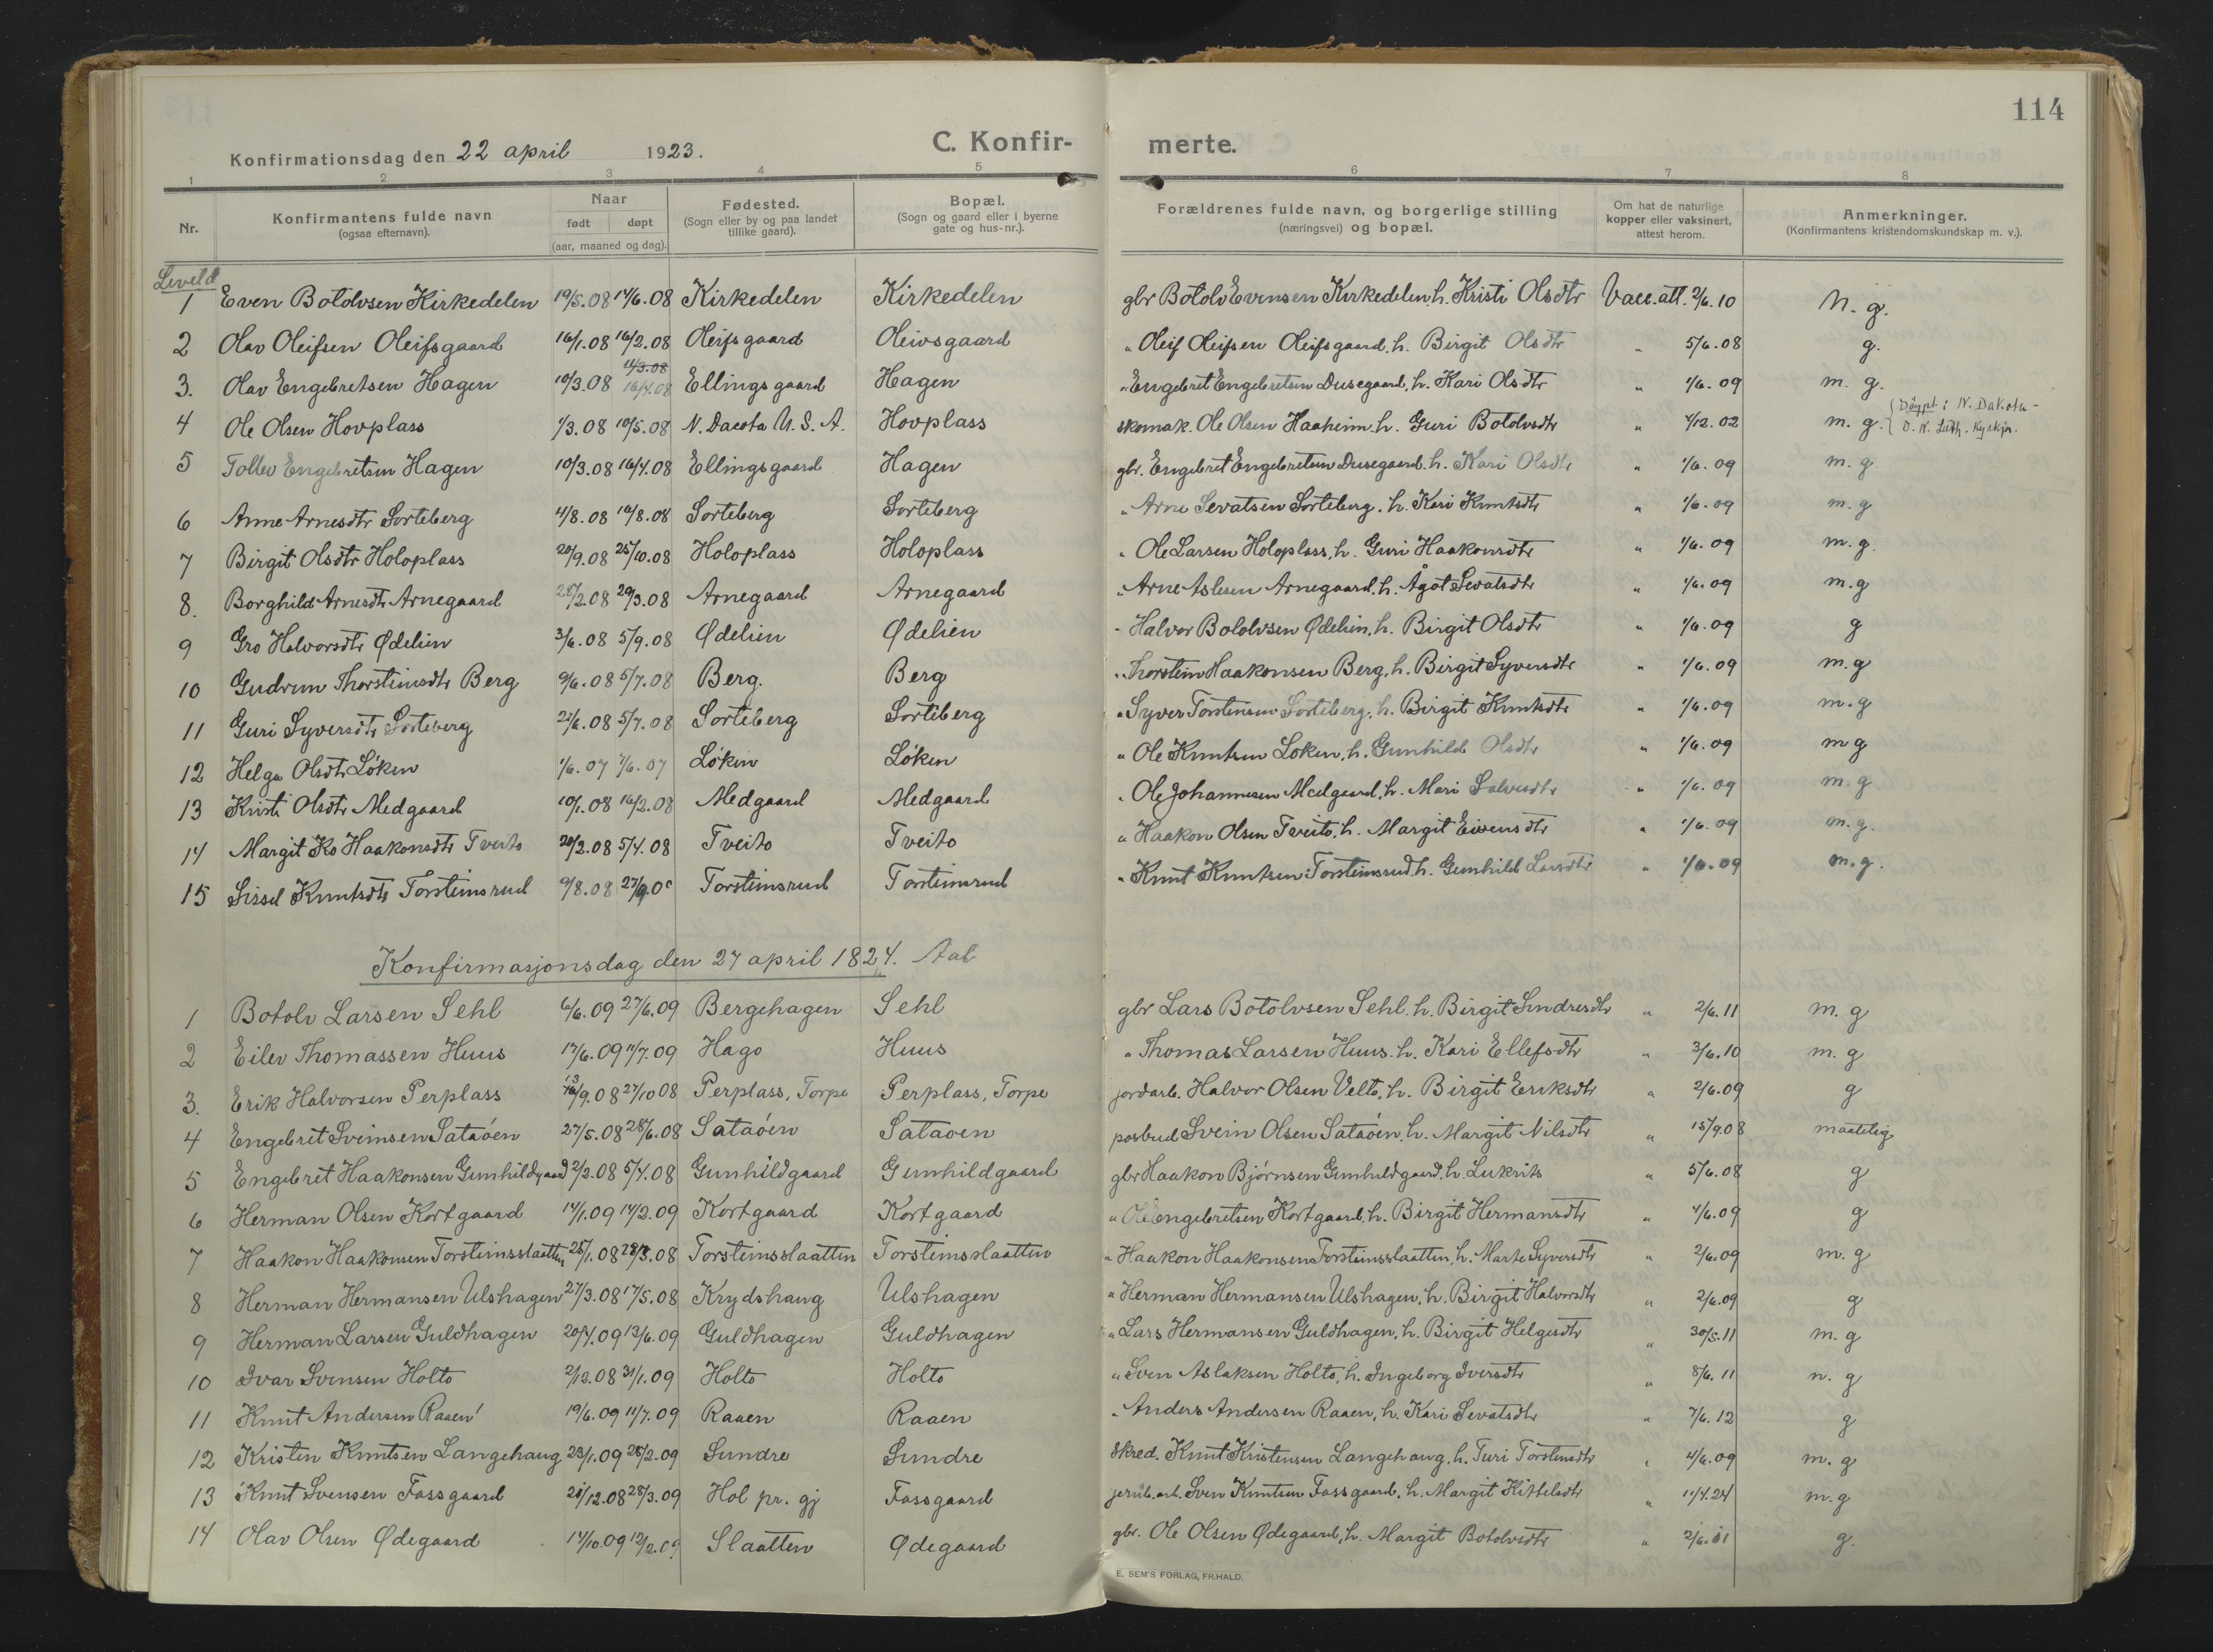 114
Konfirmationsdag den 22 april 1923. C. Konfir- merte.
1 2 3 4 5 6 7 8
Nr. Konfirmantens fulde navn (ogsaa efternavn). Naar født døpt (aar, maaned og dag). Fødested. (Sogn eller by og paa landet tillike gaard). Bopæl. (Sogn og gaard eller i byerne gate og hus-nr.). Forældrenes fulde navn, og borgerlige stilling (næringsvei) og bopæl. Om hat de naturlige kopper eller vaksinert, attest herom. Anmerkninger. (Konfirmantens kristendomskundskap m. v.).
Leveld
1 Even Botolvsen Kirkedelen 19/5.08 14/6.08 Kirkedelen Kirkedelen gbr Botolv Evensen Kirkedelen, h. Kristi Olsdtr Vacc. att. 2/6.10 M. g.
2 Olav Oleifsen Oleifsgaard 16/1.08 16/2.08 Oleifsgaard Oleivsgaard " Oleif Oleifsen Oleifsgaard, h. Birgit Olsdtr " 5/6.08 g.
3. Olav Engebretsen Hagen 10/3.08 16/4.08 Ellingsgaard Hagen " Engebret Engebretsen Dusegaard, h. Kari Olsdtr " 1/6.09 m. g.
4 Ole Olsen Hovplass 1/3.08 10/5.08 N. Dacota U. S. A. Hovplass skomak. Ole Olsen Haaheim, h. Guri Botolvsdtr " 4/12.02 m. g. Døypt i N. Dakota - D. N. Luth. Kyrkja.
5 Tollev Engebretsen Hagen 10/3.08 16/4.08 Ellingsgaard Hagen gbr. Engebret Engebretsen Dusegaard, h. Kari Olsdtr " 1/6.09 m. g.
6 Anne Arnesdtr Sorteberg 4/8.08 16/8.08 Sorteberg Sorteberg " Arne Sevatsen Sorteberg, h. Kari Knutsdtr " 1/6.09 m. g
7 Birgit Olsdtr Holoplass 20/9.08 25/10.08 Holoplass Holoplass " Ole Larsen Holoplass, h. Guri Haakonsdtr " 1/6.09 m. g.
8. Borghild Arnesdtr Arnegaard 28/2.08 29/3.08 Arnegaard Arnegaard " Arne Aslesen Arnegaard, h. Ågot Sevatsdtr " 1/6.09 m. g
9 Gro Halvorsdtr Ødelien 3/6.08 5/9.08 Ødelien Ødelien " Halvor Botolvsen Ødelien, h. Birgit Olsdtr " 1/6.09 g
10 Gudrun Thorsteinsdtr Berg 9/6.08 5/7.08 Berg. Berg " Thorstein Haakonsen Berg, h. Birgit Syversdtr " 1/6.09 m. g
11 Guri Syversdtr Sorteberg 21/6.08 5/7.08 Sorteberg Sorteberg " Syver Torstensen Sorteberg, h. Birgit Knutsdtr " 1/6.09 m. g
12 Helga Olsdtr Løken 1/6.07 7/6.07 Løken Løken " Ole Knutsen Løken, h. Gunhild Olsdtr " 1/6.09 m g
13 Kristi Olsdtr Medgaard 10/1.08 16/2.08 Medgaard Medgaard " Ole Johannesen Medgaard, h. Mari " 1/6.09 m. g
14 Margit Haakonsdtr Tveito 20/2.08 5/4.08 Tveito Tveito " Haakon Olsen Tveito, h. Margit Eivensdtr " 1/6.09 m. g.
15 Sissel Knutsdtr Torsteinsrud 9/8.08 Torsteinsrud Torsteinsrud " Knut Knutsen Torsteinsrud, h. Gunhild Larsdtr " 1/6.09 m. g.
Konfirmasjonsdag den 27 april 1824. Aal
1 Botolv Larsen Sehl 6/6.09 27/6.09 Bergehagen Sehl gbr Lars Botolvsen Sehl, h. Birgit Sindresdtr " 2/6.11 m. g
2 Eilev Thomassen Huus 17/6.09 11/7.09 Hago Huus " Thomas Larsen Huus, h. Kari Ellefsdtr " 3/6.10 m. g
3. Erik Halvorsen Perplass 13/9.08 27/10 08 Perplass, Torpe Perplass, Torpe jordarb. Halvor Olsen Velto, h. Birgit Eriksdtr " 2/6.09 g
4 Engebret Sveinsen Sataøen 27/5.08 28/6.08 Sataøen Sataøen postbud Svein Olsen Sataøen, h. Margit Nilsdtr " 15/9.08 maatelig
5 Engebret Haakonsen Gunhildgaard 2/2.08 5/4.08 Gunhildgaard Gunhildgaard gbr Haakon Bjørnsen Gunhildgaard, h. Lukrits " 5/6.08 g
6 Herman Olsen Kortgaard 14/1.09 14/2.09 Kortgaard Kortgaard " Ole Engebretsen Kortgaard, h. Birgit Hermansdtr " 4/6.09 g
7 Haakon Haakonsen Torsteinsslaatten 25/1.08 28/3.08 Torsteinsslaatten Torsteinsslaatten " Haakon Haakonsen Torsteinsslaatten, h. Marte Syversdtr " 2/6.09 m. g
8 Herman Hermansen Ulshagen 27/3.08 17/5.08 Krydshaug Ulshagen " Herman Hermansen Ulshagen, h. Birgit Halvorsdtr " 2/6.09 g
9 Herman Larsen Guldhagen 20/4.09 13/6.09 Guldhagen Guldhagen " Lars Hermansen Guldhagen, h. Birgit Helgesdtr " 30/5.11 m. g
10 Ivar Svensen Holto 2/12.08 31/1.09 Holto Holto " Sven Aslaksen Holto, h. Ingeborg Iversdtr " 8/6.11 m. g
11 Knut Andersen Raaen 19/6.09 11/7.09 Raaen Raaen " Anders Andersen Raaen, h. Kari Sevatsdtr " 7/6.12 g
12 Kristen Knutsen Langehaug 23/1.09 28/2.09 Sundre Sundre skred. Knut Kristensen Langehaug, h. Turi Torsteinsdtr " 4/6.09 m. g
13 Knut Svensen Fossgaard 21/12.08 28/3.09 Hol pr. gj Fossgaard jernb. arb. Sven Knutsen Fossgaard, h. Margit Kittelsdtr " 11/4.24 m. g
14 Olav Olsen Ødegaard 14/10.09 Slaatten Ødegaard gbr. Ole Olsen Ødegaard, h. Margit Botolvsdtr " 2/6.11 g.
E. SEM'S FORLAG, FR.HALD.